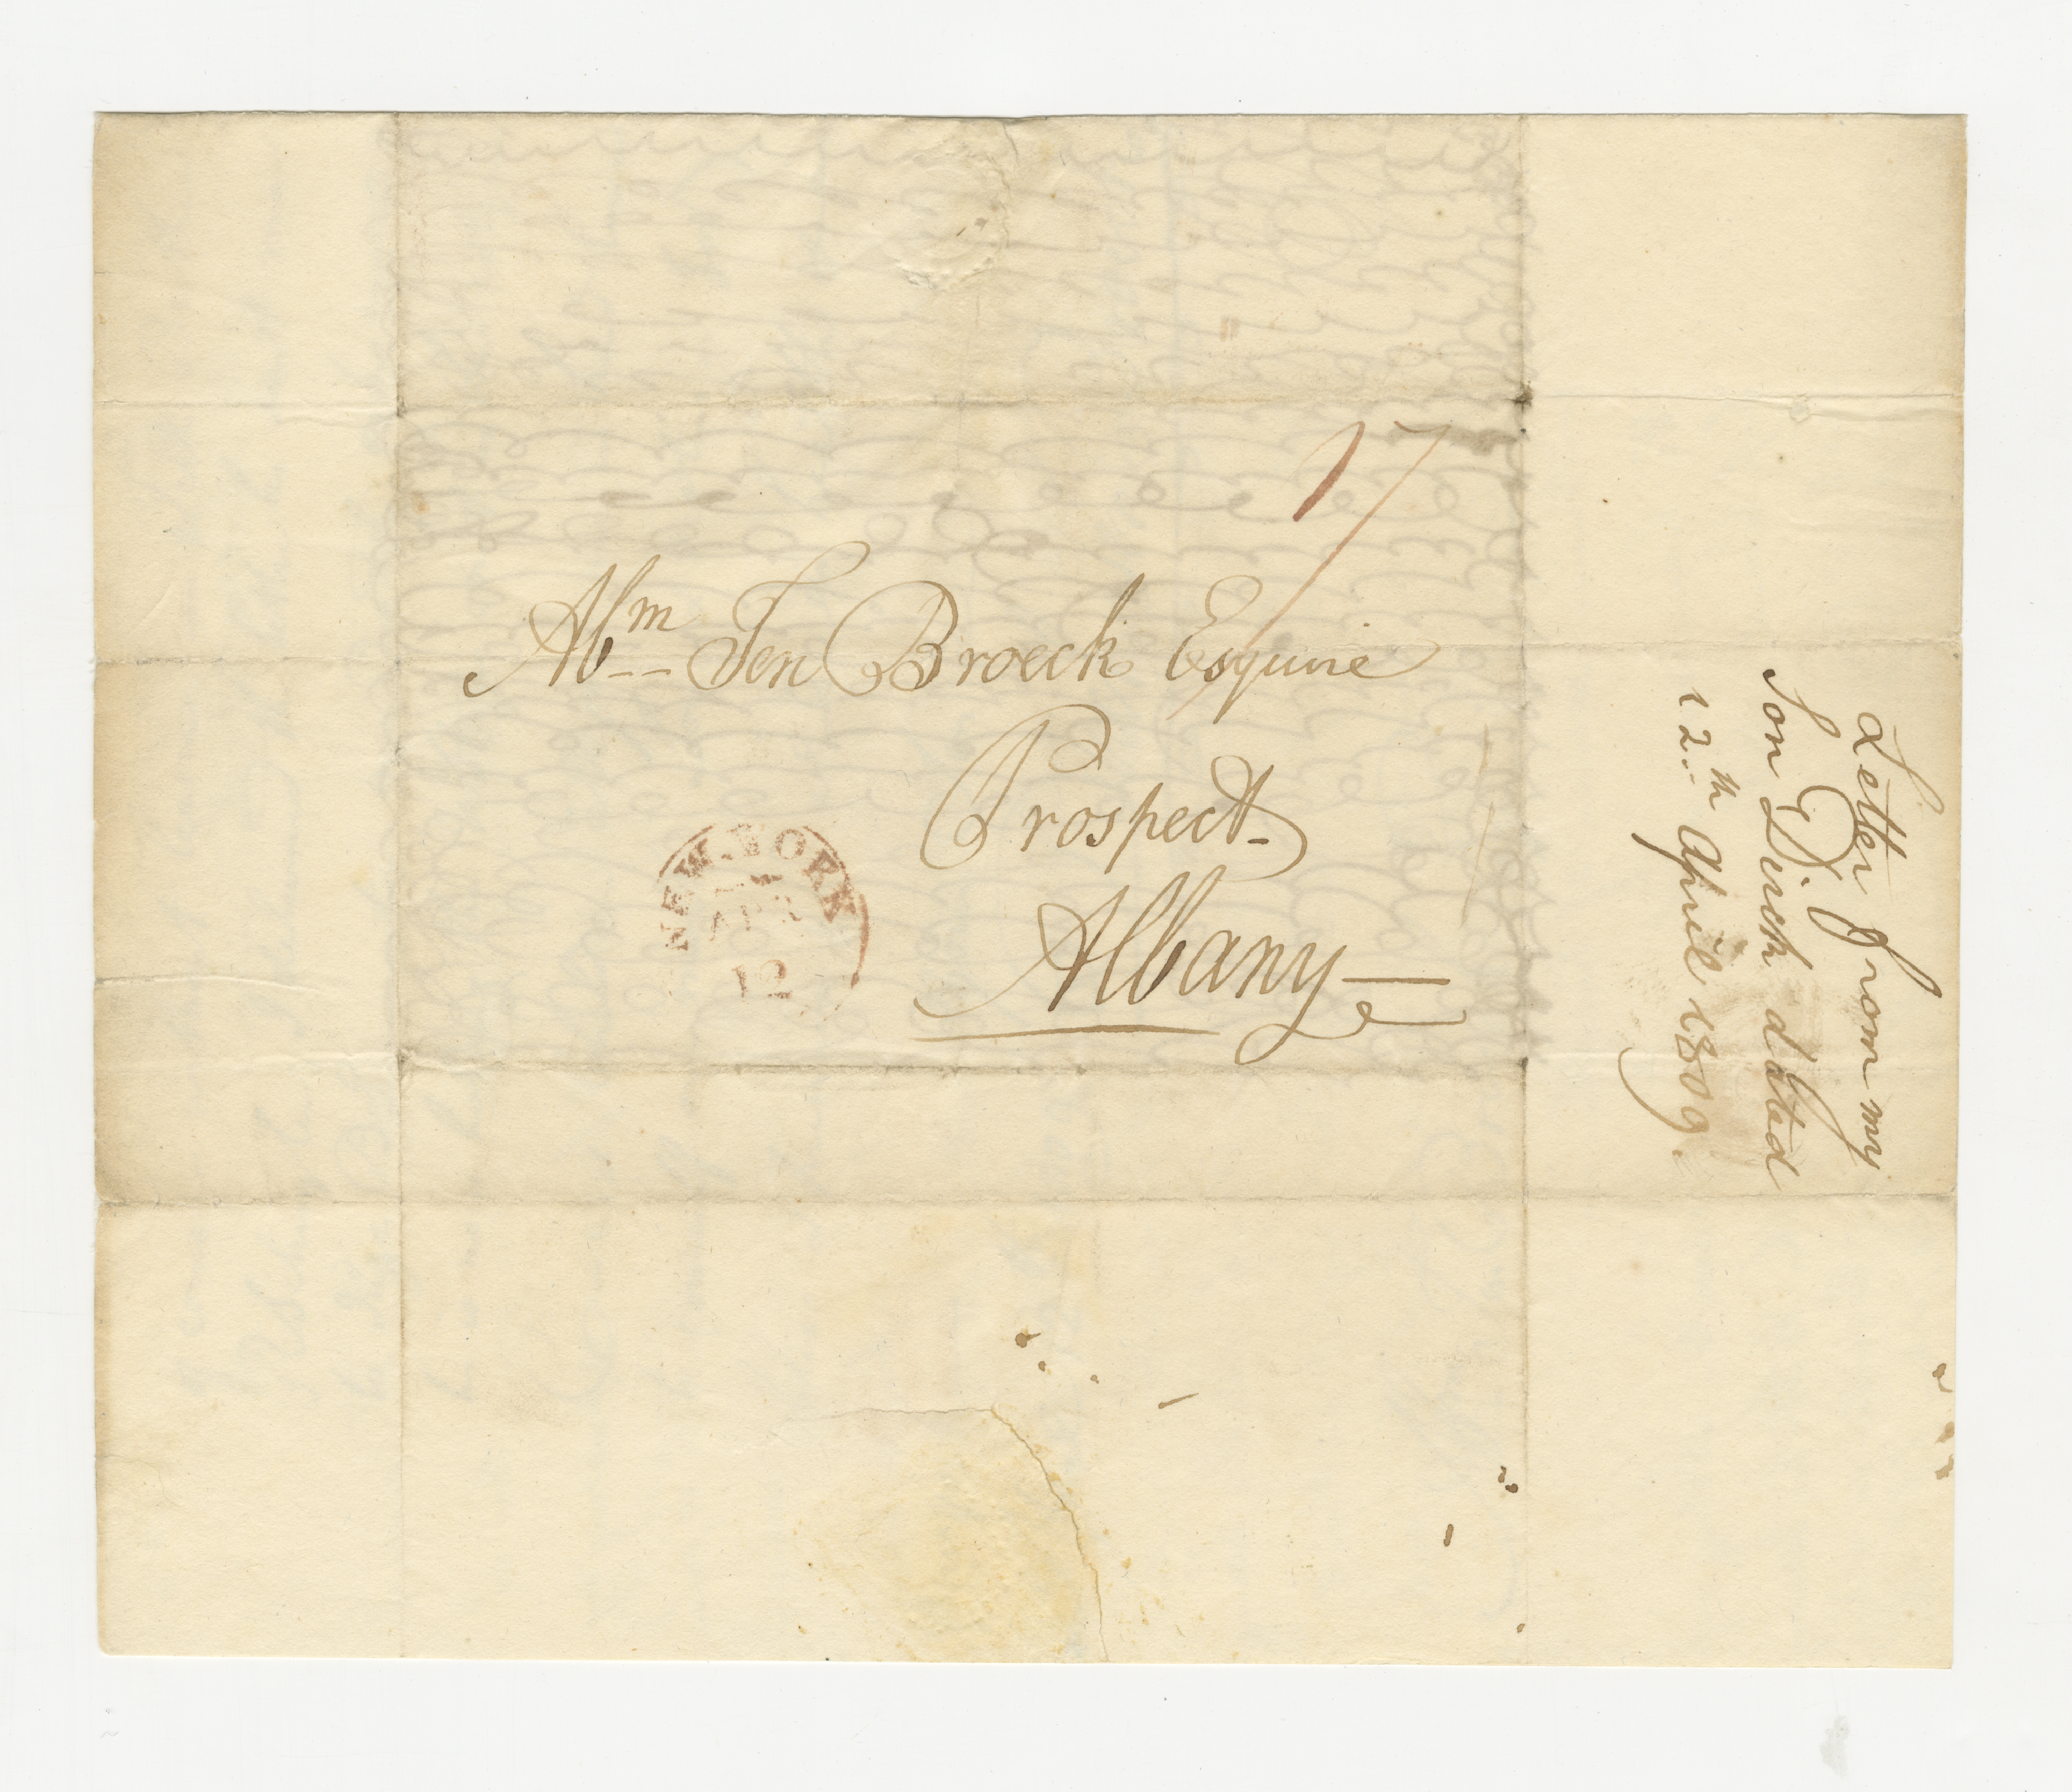 17
Abm Ten Broeck Esquire
Prospect
Albany
NEW-YORK
APR
12
Letter from my
Son Dirck dated
12th April 1809.